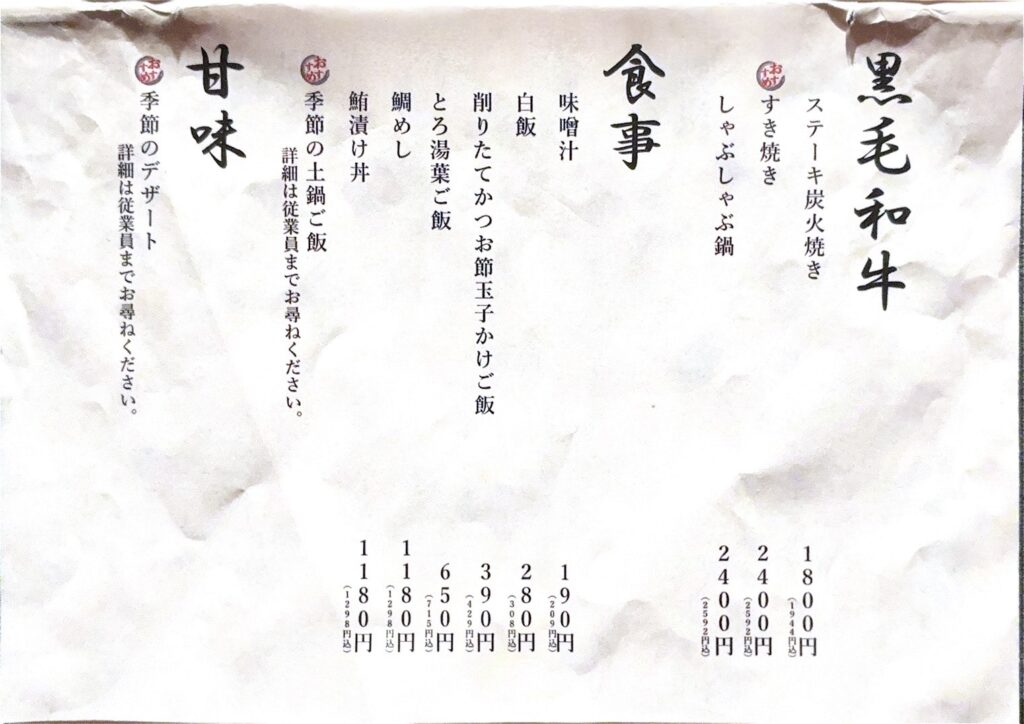 黒毛和牛
ステーキ炭火焼き
1800円
(1944円込)
おすすめ
すき焼き
2400円
(2592円込)
しゃぶしゃぶ鍋
2400円
(2592円込)
食事
味噌汁
190円
(209円込)
白飯
280円
(308円込)
削りたてかつお節玉子かけご飯
390円
(429円込)
とろ湯葉ご飯
650円
(715円込)
鯛めし
1180円
(1298円込)
鮪漬け丼
1180円
(1298円込)
おすすめ
季節の土鍋ご飯
詳細は従業員までお尋ねください。
甘味
おすすめ
季節のデザート
詳細は従業員までお尋ねください。